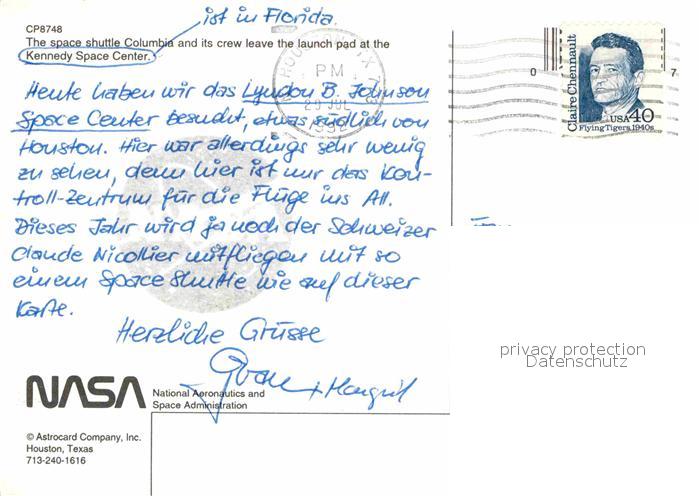 ist in Florida.
CP8748
The space shuttle Columbia and its crew leave the launch pad at the
Kennedy Space Center.
Heute haben wir das Lyndon B. Johnson
Space Center besucht, etwas südlich von
Houston. Hier war allerdings sehr wenig
zu sehen, denn hier ist nur das Kon-
troll-Zentrum für die Flüge ins All.
Dieses Jahr wird ja noch der Schweizer
Claude Nicollier mitfliegen mit so
einem Space Shuttle wie auf dieser
Karte.
Herzliche Grüsse
+ Margrit
NASA
National Aeronautics and
Space Administration
© Astrocard Company, Inc.
Houston, Texas
713-240-1616
HOUSTON, TX 773
PM
20 JUL
1992
0 7
Claire Chennault
USA 40
Flying Tigers 1940s
privacy protection
Datenschutz